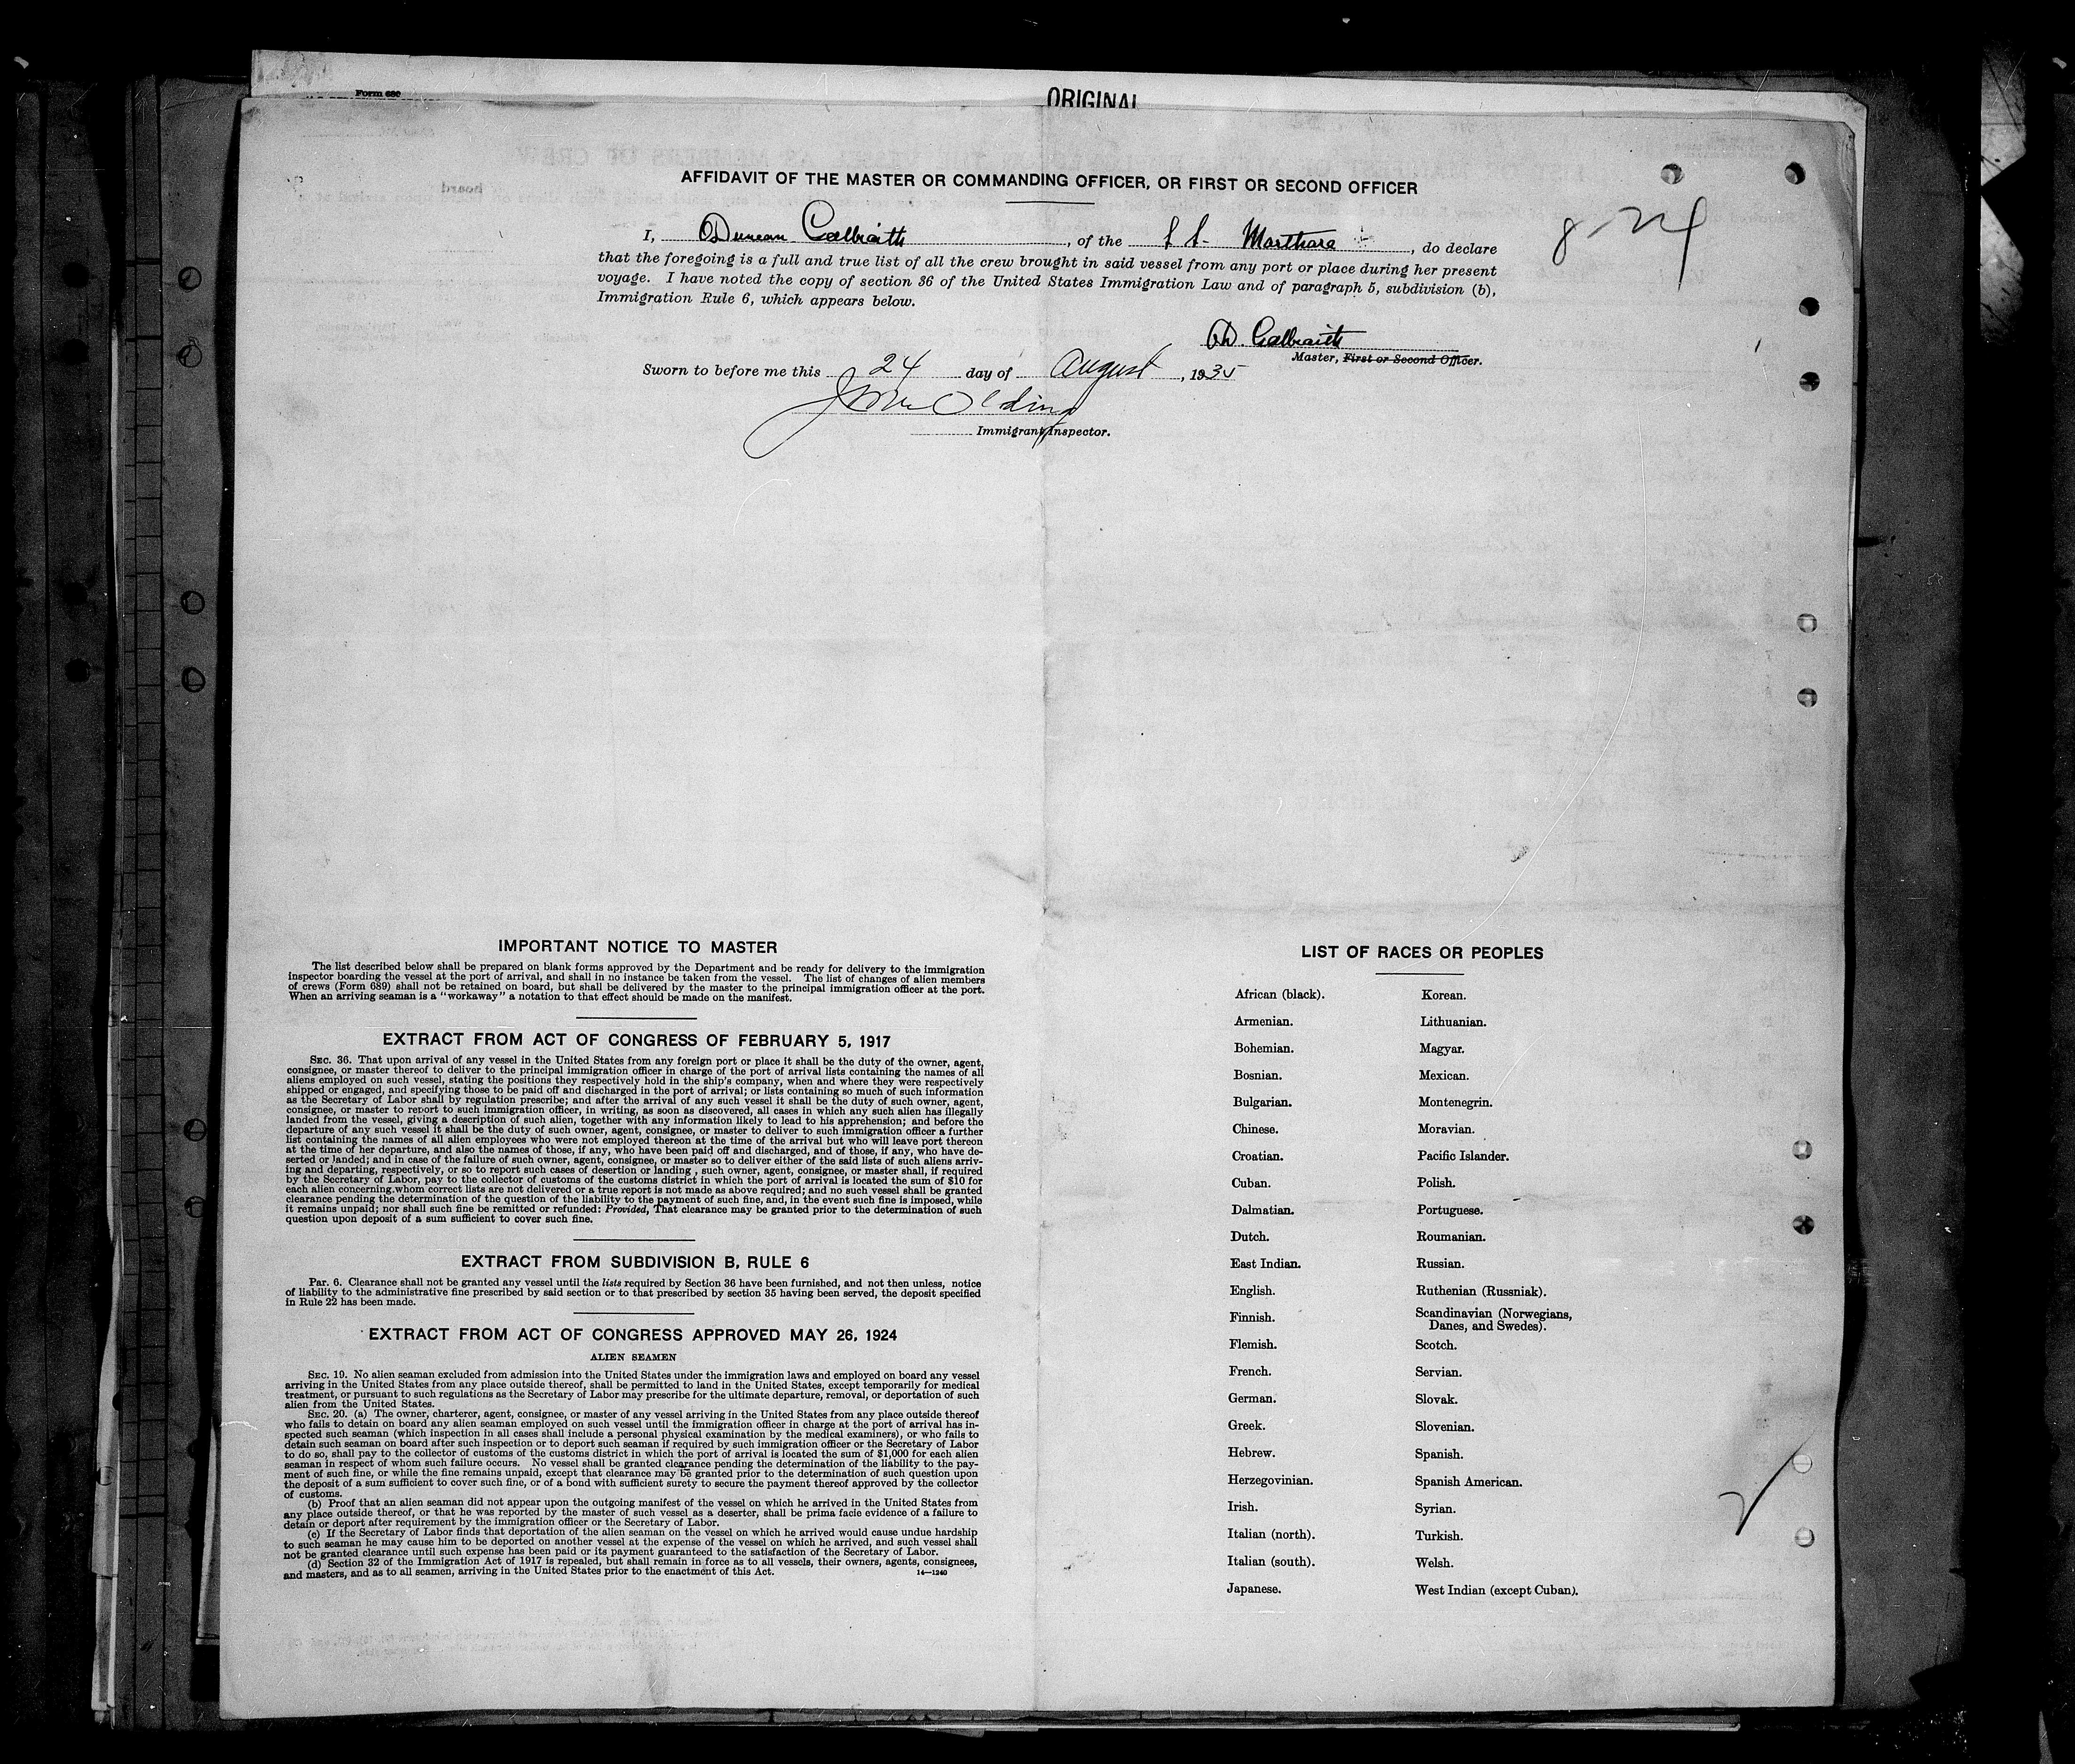 Form 680
ORIGINAL
AFFIDAVIT OF THE MASTER OR COMMANDING OFFICER, OR FIRST OR SECOND OFFICER
8-24
I, Duncan Galbraith, of the S S. Marthara, do declare
that the foregoing is a full and true list of all the crew brought in said vessel from any port or place during her present
voyage. I have noted the copy of section 36 of the United States Immigration Law and of paragraph 5, subdivision (b),
Immigration Rule 6, which appears below.
D. Galbraith
Master, First or Second Officer.
Sworn to before me this 24 day of August, 1935
Immigrant Inspector.
IMPORTANT NOTICE TO MASTER
The list described below shall be prepared on blank forms approved by the Department and be ready for delivery to the immigration
inspector boarding the vessel at the port of arrival, and shall in no instance be taken from the vessel. The list of changes of alien members
of crews (Form 689) shall not be retained on board, but shall be delivered by the master to the principal immigration officer at the port.
When an arriving seaman is a "workaway" a notation to that effect should be made on the manifest.
EXTRACT FROM ACT OF CONGRESS OF FEBRUARY 5, 1917
SEC. 36. That upon arrival of any vessel in the United States from any foreign port or place it shall be the duty of the owner, agent,
consignee, or master thereof to deliver to the principal immigration officer in charge of the port of arrival lists containing the names of all
aliens employed on such vessel, stating the positions they respectively hold in the ship's company, when and where they were respectively
shipped or engaged, and specifying those to be paid off and discharged in the port of arrival; or lists containing so much of such information
as the Secretary of Labor shall by regulation prescribe; and after the arrival of any such vessel it shall be the duty of such owner, agent,
consignee, or master to report to such immigration officer, in writing, as soon as discovered, all cases in which any such alien has illegally
landed from the vessel, giving a description of such alien, together with any information likely to lead to his apprehension; and before the
departure of any such vessel it shall be the duty of such owner, agent, consignee, or master to deliver to such immigration officer a further
list containing the names of all alien employees who were not employed thereon at the time of the arrival but who will leave port thereon
at the time of her departure, and also the names of those, if any, who have been paid off and discharged, and of those, if any, who have de-
serted or landed; and in case of the failure of such owner, agent, consignee, or master so to deliver either of the said lists of such aliens arriv-
ing and departing, respectively, or so to report such cases of desertion or landing , such owner, agent, consignee, or master shall, if required
by the Secretary of Labor, pay to the collector of customs of the customs district in which the port of arrival is located the sum of $10 for
each alien concerning whom correct lists are not delivered or a true report is not made as above required; and no such vessel shall be granted
clearance pending the determination of the question of the liability to the payment of such fine, and, in the event such fine is imposed, while
it remains unpaid; nor shall such fine be remitted or refunded: Provided, That clearance may be granted prior to the determination of such
question upon deposit of a sum sufficient to cover such fine.
EXTRACT FROM SUBDIVISION B, RULE 6
Par. 6. Clearance shall not be granted any vessel until the lists required by Section 36 have been furnished, and not then unless, notice
of liability to the administrative fine prescribed by said section or to that prescribed by section 35 having been served, the deposit specified
in Rule 22 has been made.
EXTRACT FROM ACT OF CONGRESS APPROVED MAY 26, 1924
ALIEN SEAMEN
SEC. 19. No alien seaman excluded from admission into the United States under the immigration laws and employed on board any vessel
arriving in the United States from any place outside thereof, shall be permitted to land in the United States, except temporarily for medical
treatment, or pursuant to such regulations as the Secretary of Labor may prescribe for the ultimate departure, removal, or deportation of such
alien from the United States.
SEC. 20. (a) The owner, charterer, agent, consignee, or master of any vessel arriving in the United States from any place outside thereof
who fails to detain on board any alien seaman employed on such vessel until the immigration officer in charge at the port of arrival has in-
spected such seaman (which inspection in all cases shall include a personal physical examination by the medical examiners), or who fails to
detain such seaman on board after such inspection or to deport such seaman if required by such immigration officer or the Secretary of Labor
to do so, shall pay to the collector of customs of the customs district in which the port of arrival is located the sum of $1,000 for each alien
seaman in respect of whom such failure occurs. No vessel shall be granted clearance pending the determination of the liability to the pay-
ment of such fine, or while the fine remains unpaid, except that clearance may be granted prior to the determination of such question upon
the deposit of a sum sufficient to cover such fine, or of a bond with sufficient surety to secure the payment thereof approved by the collector
of customs.
(b) Proof that an alien seaman did not appear upon the outgoing manifest of the vessel on which he arrived in the United States from
any place outside thereof, or that he was reported by the master of such vessel as a deserter, shall be prima facie evidence of a failure to
detain or deport after requirement by the immigration officer or the Secretary of Labor.
(c) If the Secretary of Labor finds that deportation of the alien seaman on the vessel on which he arrived would cause undue hardship
to such seaman he may cause him to be deported on another vessel at the expense of the vessel on which he arrived, and such vessel shall
not be granted clearance until such expense has been paid or its payment guaranteed to the satisfaction of the Secretary of Labor.
(d) Section 32 of the Immigration Act of 1917 is repealed, but shall remain in force as to all vessels, their owners, agents, consignees,
and masters, and as to all seamen, arriving in the United States prior to the enactment of this Act.
14—1240
LIST OF RACES OR PEOPLES
African (black).
Armenian.
Bohemian.
Bosnian.
Bulgarian.
Chinese.
Croatian.
Cuban.
Dalmatian.
Dutch.
East Indian.
English.
Finnish.
Flemish.
French.
German.
Greek.
Hebrew.
Herzegovinian.
Irish.
Italian (north).
Italian (south).
Japanese.
Korean.
Lithuanian.
Magyar.
Mexican.
Montenegrin.
Moravian.
Pacific Islander.
Polish.
Portuguese.
Roumanian.
Russian.
Ruthenian (Russniak).
Scandinavian (Norwegians,
Danes, and Swedes).
Scotch.
Servian.
Slovak.
Slovenian.
Spanish.
Spanish American.
Syrian.
Turkish.
Welsh.
West Indian (except Cuban).